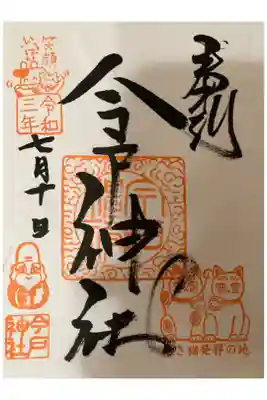 奉拝
今戸神社
笑顔
いっぱい
令和
三年
七月十日
今戸
神社
招き猫発祥の地